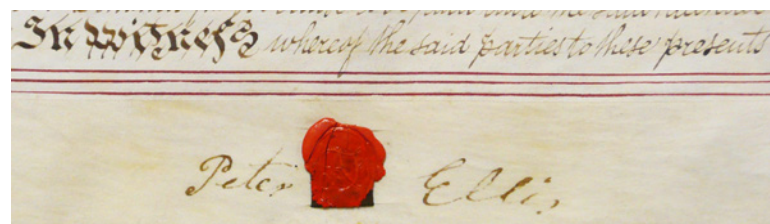 In Witness whereof the said parties to these presents
Peter Ellis